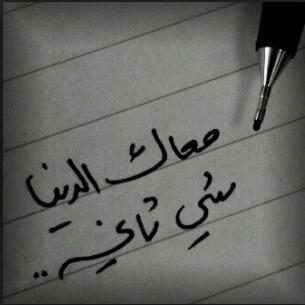 معاك الدينا
شي ثاني ..